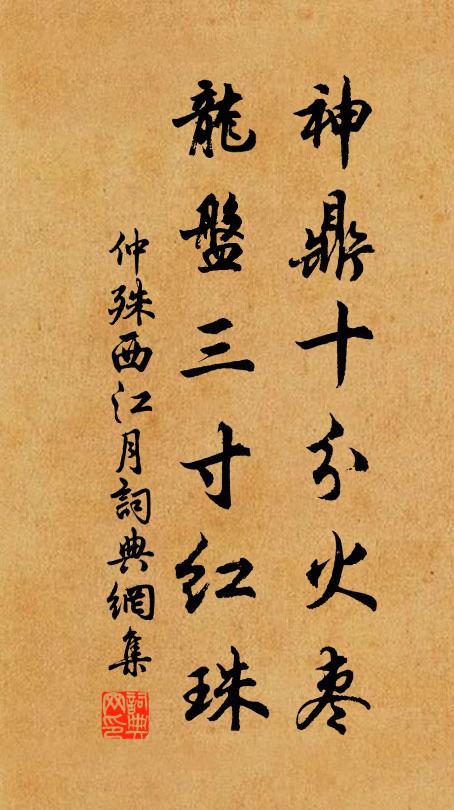 神鼎十分火棗
龍盤三寸紅珠
仲殊西江月詞典網集
詞典網印